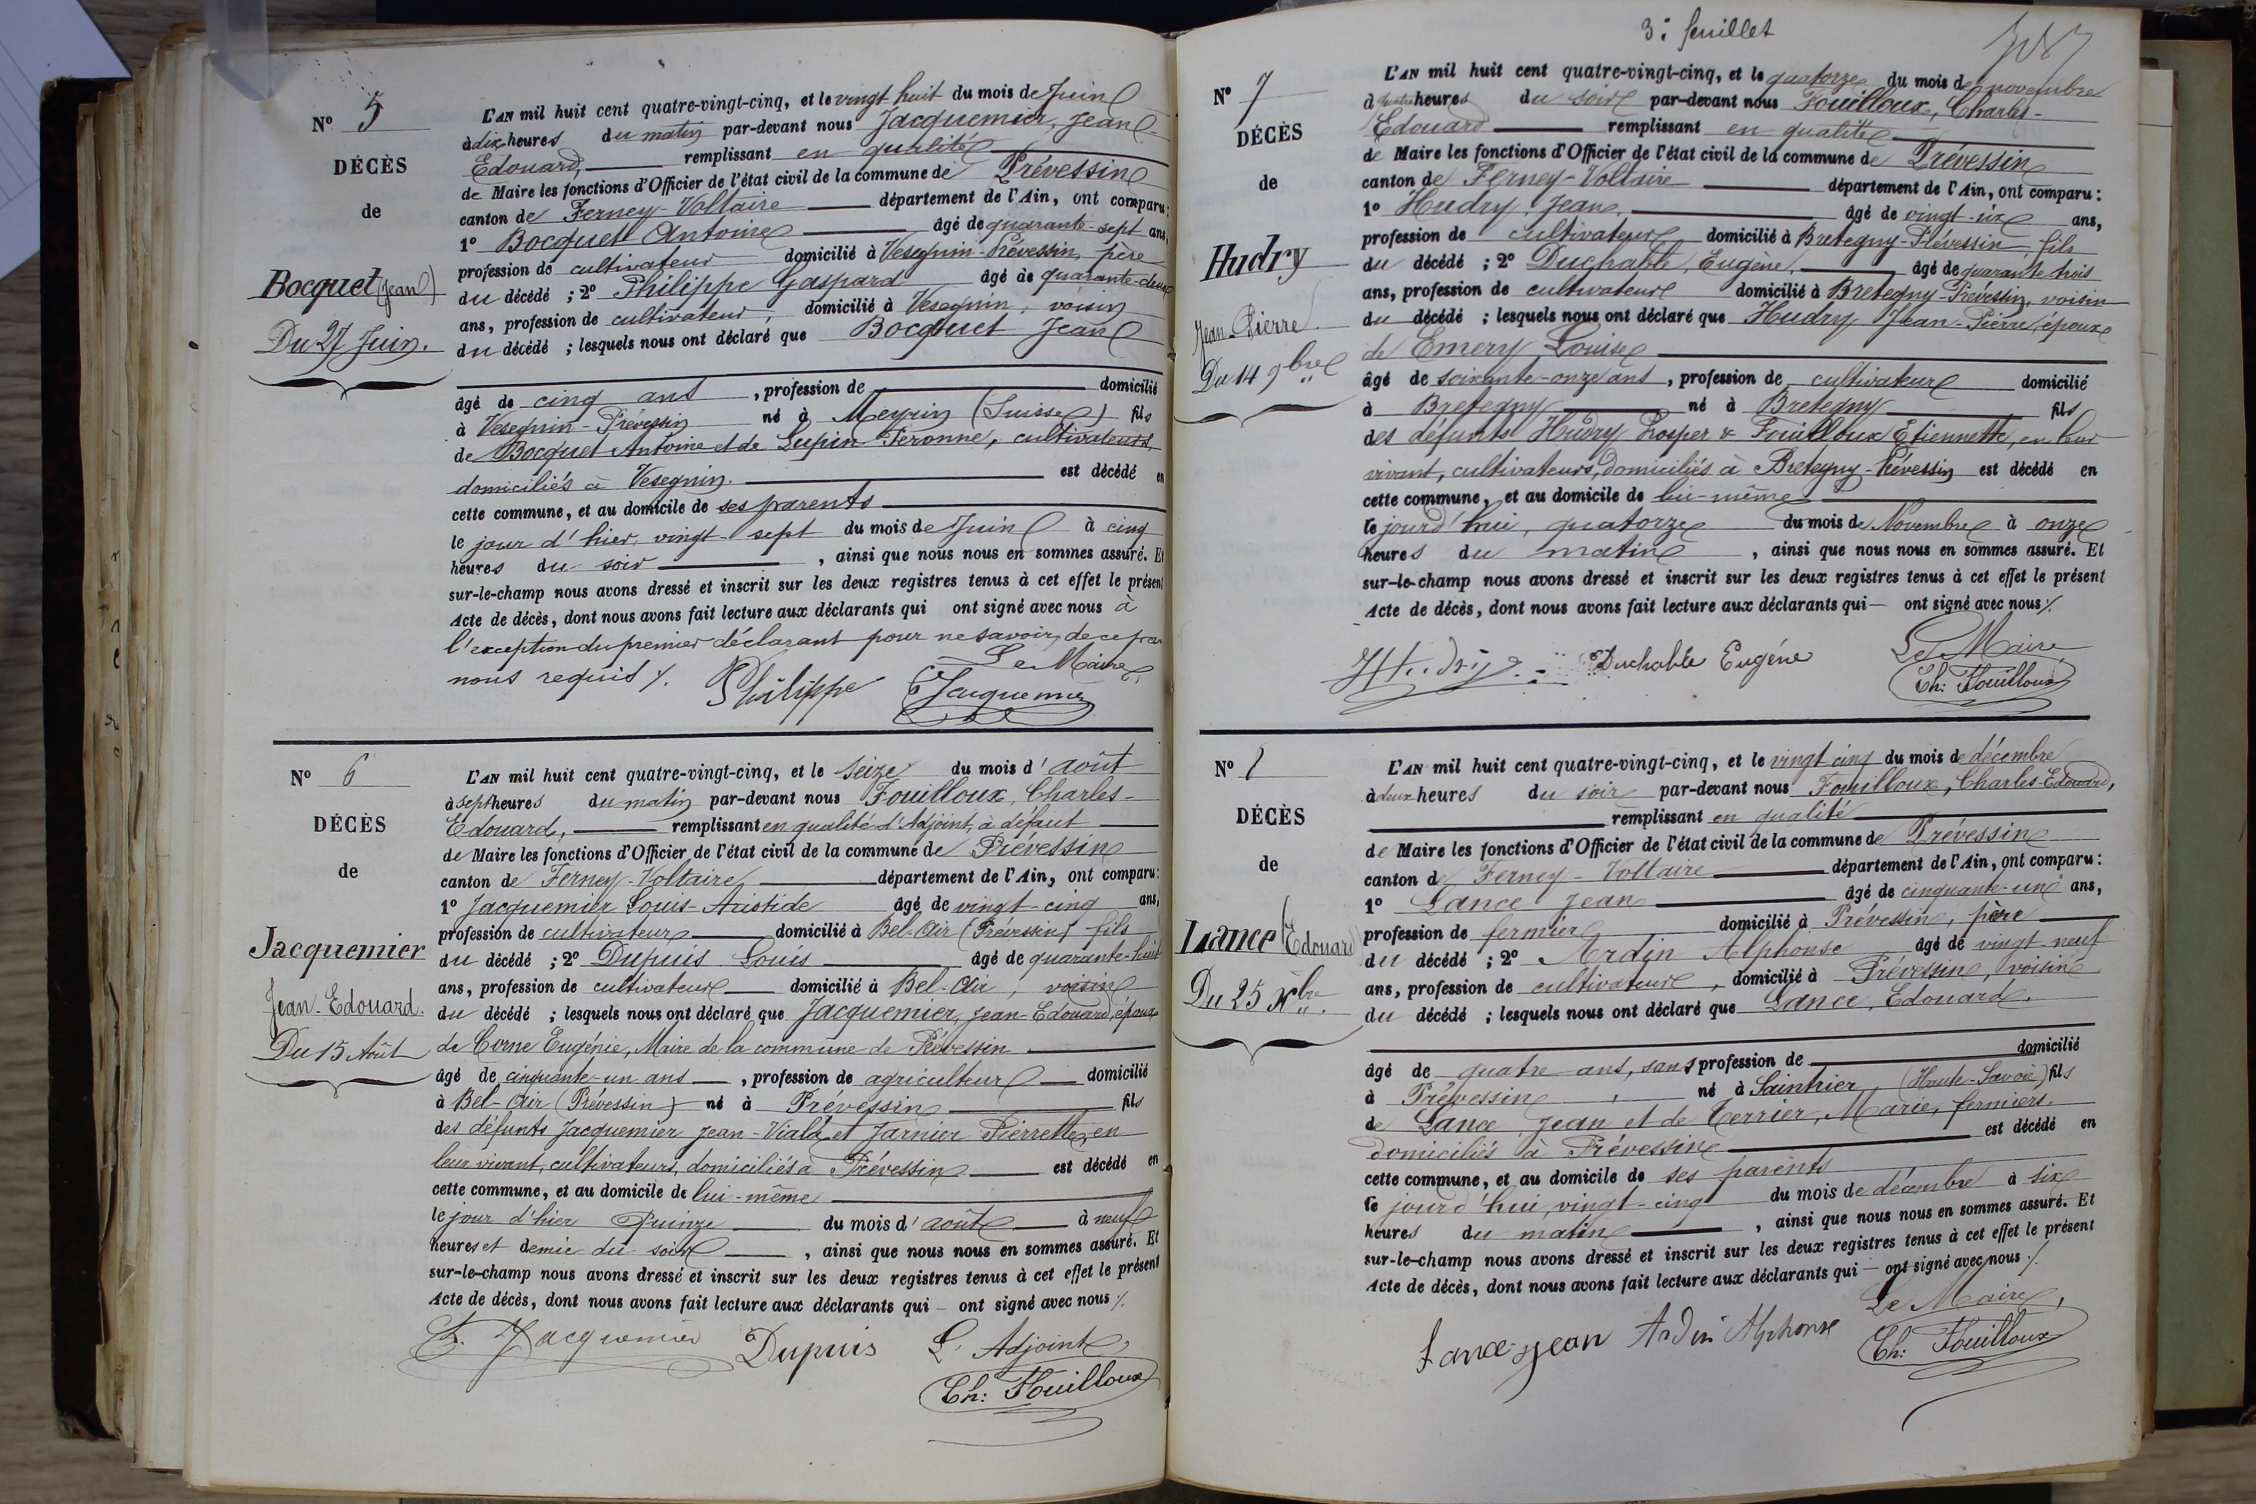 N° 5
DÉCÈS
de
Bocquet (Jean)
Du 27 Juin.
L'AN mil huit cent quatre-vingt-cinq, et le vingt huit du mois de Juin
à dix heures du matin par-devant nous Jacquemier, Jean-
Edouard, remplissant en qualité
de Maire les fonctions d'Officier de l'état civil de la commune de Prévessin
canton de Ferney-Voltaire département de l'Ain, ont comparu:
1° Bocquet Antoine âgé de quarante-sept ans,
profession de cultivateur domicilié à Vesegnin-Prévessin, père
du décédé ; 2° Philippe Gaspard âgé de quarante-deux
ans, profession de cultivateur, domicilié à Vesegnin, voisin
du décédé ; lesquels nous ont déclaré que Bocquet Jean
âgé de cinq ans, profession de domicilié
à Vesegnin-Prévessin né à Meyrin (Suisse) fils
de Bocquet Antoine et de Lupin Peronne, cultivateurs,
domiciliés à Vesegnin. est décédé en
cette commune, et au domicile de ses parents
le jour d'hier, vingt-sept du mois de Juin à cinq
heures du soir, ainsi que nous nous en sommes assuré. Et
sur-le-champ nous avons dressé et inscrit sur les deux registres tenus à cet effet le présent
Acte de décès, dont nous avons fait lecture aux déclarants qui ont signé avec nous à
l'exception du premier déclarant pour ne savoir, de ce par
nous requis ./.
Le Maire,
Philippe Jacquemier
N° 6
DÉCÈS
de
Jacquemier
Jean-Edouard.
Du 15 Août
L'AN mil huit cent quatre-vingt-cinq, et le seize du mois d'août
à sept heures du matin par-devant nous Fouilloux, Charles-
Edouard, remplissant en qualité d'Adjoint, à défaut
de Maire les fonctions d'Officier de l'état civil de la commune de Prévessin
canton de Ferney-Voltaire département de l'Ain, ont comparu:
1° Jacquemier Louis-Aristide âgé de vingt-cinq ans,
profession de cultivateur domicilié à Bel-Air (Prévessin) fils
du décédé ; 2° Dupuis Louis âgé de quarante-huit
ans, profession de cultivateur domicilié à Bel-Air, voisin
du décédé ; lesquels nous ont déclaré que Jacquemier, Jean-Edouard, époux
de Corne Eugénie, Maire de la commune de Prévessin
âgé de cinquante-un ans, profession de agriculteur domicilié
à Bel-Air (Prévessin) né à Prévessin fils
des défunts Jacquemier Jean-Viala et Jarnier Pierrette, en
leur vivant, cultivateurs, domiciliés à Prévessin est décédé en
cette commune, et au domicile de lui-même
le jour d'hier Quinze du mois d'août à neuf
heures et demie du soir, ainsi que nous nous en sommes assuré. Et
sur-le-champ nous avons dressé et inscrit sur les deux registres tenus à cet effet le présent
Acte de décès, dont nous avons fait lecture aux déclarants qui – ont signé avec nous ./.
Jacquemier Dupuis L'Adjoint,
Ch: Fouilloux
3e feuillet
N° 7
DÉCÈS
de
Hudry
Jean Pierre.
Du 14 9bre
L'AN mil huit cent quatre-vingt-cinq, et le quatorze du mois de novembre
à quatre heures du soir par-devant nous Fouilloux, Charles-
Edouard remplissant en qualité
de Maire les fonctions d'Officier de l'état civil de la commune de Prévessin
canton de Ferney-Voltaire département de l'Ain, ont comparu:
1° Hudry, Jean, âgé de vingt-six ans,
profession de cultivateur domicilié à Bretegny-Prévessin, fils
du décédé ; 2° Duchable, Eugène, âgé de quarante trois
ans, profession de cultivateur domicilié à Bretegny-Prévessin, voisin
du décédé ; lesquels nous ont déclaré que Hudry Jean-Pierre, époux
de Emery Louise
âgé de soixante-onze ans, profession de cultivateur domicilié
à Bretegny né à Bretegny fils
des défunts Hudry Prosper & Fouilloux Etiennette, en leur
vivant, cultivateurs, domiciliés à Bretegny-Prévessin est décédé en
cette commune, et au domicile de lui-même
le jourd'hui, quatorze du mois de Novembre à onze
heures du matin, ainsi que nous nous en sommes assuré. Et
sur-le-champ nous avons dressé et inscrit sur les deux registres tenus à cet effet le présent
Acte de décès, dont nous avons fait lecture aux déclarants qui — ont signé avec nous ./.
Le Maire,
Hudry Duchable Eugéne Ch: Fouilloux
N°
DÉCÈS
de
Lance (Edouard)
Du 25 Xbre.
L'AN mil huit cent quatre-vingt-cinq, et le vingt cinq du mois de décembre
à deux heures du soir par-devant nous Fouilloux, Charles-Edouard,
remplissant en qualité
de Maire les fonctions d'Officier de l'état civil de la commune de Prévessin
canton de Ferney-Voltaire département de l'Ain, ont comparu:
1° Lance Jean âgé de cinquante-un ans,
profession de fermier domicilié à Prévessin, père
du décédé ; 2° Ardin Alphonse âgé de vingt-neuf
ans, profession de cultivateur, domicilié à Prévessin, voisin
du décédé ; lesquels nous ont déclaré que Lance, Edouard.
âgé de quatre ans, sans profession de domicilié
à Prévessin, né à (Haute-Savoie) fils
de Lance Jean et de Terrier, Marie, fermiers.
domiciliés à Prévessin est décédé en
cette commune, et au domicile de ses parents
le jourd'hui, vingt-cinq du mois de décembre à six
heures du matin, ainsi que nous nous en sommes assuré. Et
sur-le-champ nous avons dressé et inscrit sur les deux registres tenus à cet effet le présent
Acte de décès, dont nous avons fait lecture aux déclarants qui — ont signé avec nous ./.
Le Maire,
Lance Jean Ardin Alphonse Ch: Fouilloux